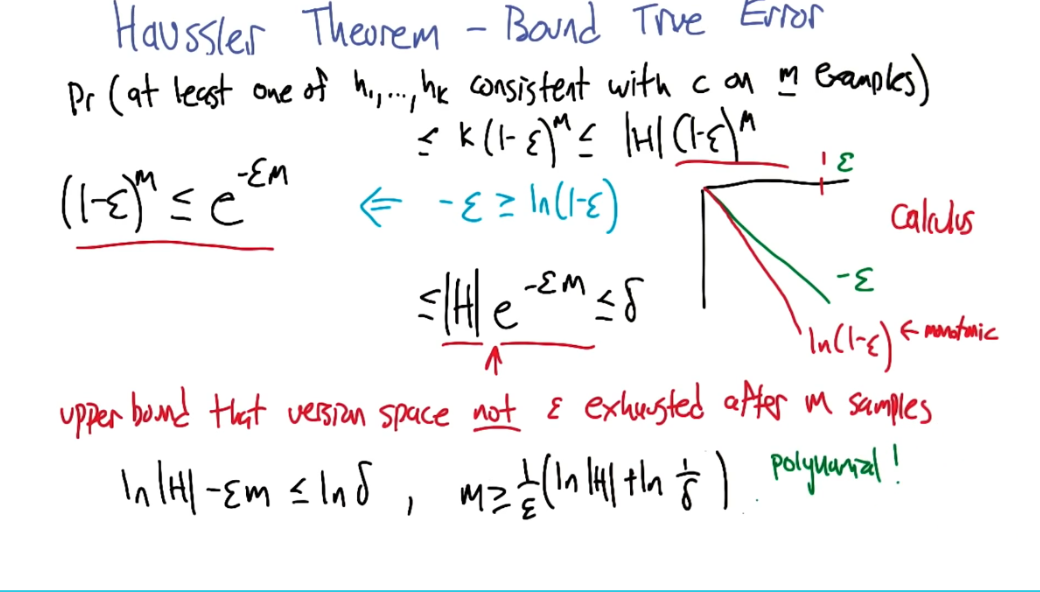 Haussler Theorem - Bound True Error
Pr (at least one of h₁,...,hₖ consistent with c on m examples)
≤ k(1-ε)^m ≤ |H|(1-ε)^m
(1-ε)^m ≤ e^-εm ⇐ -ε ≥ ln(1-ε)
ε
calculus
-ε
ln(1-ε) ← monotonic
≤ |H| e^-εm ≤ δ
upper bound that version space not ε exhausted after m samples
ln|H| - εm ≤ ln δ , m ≥ 1/ε (ln|H| + ln 1/δ) . polynomial!